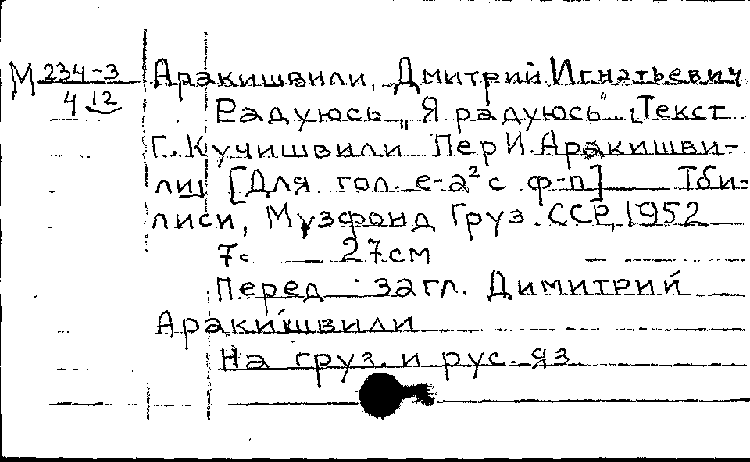 М 234-3 Аракишвили, Дмитрий Игнатьевич
4 12 Радуюсь „Я радуюсь" Текст
Г. Кучишвили Пер И. Аракишви-
ли [Для гол. e-a² с ф-п] Тби-
лиси, Музфонд Груз. ССР, 1952
7с 27см
Перед загл. Димитрий
Аракишвили
На груз. и рус яз